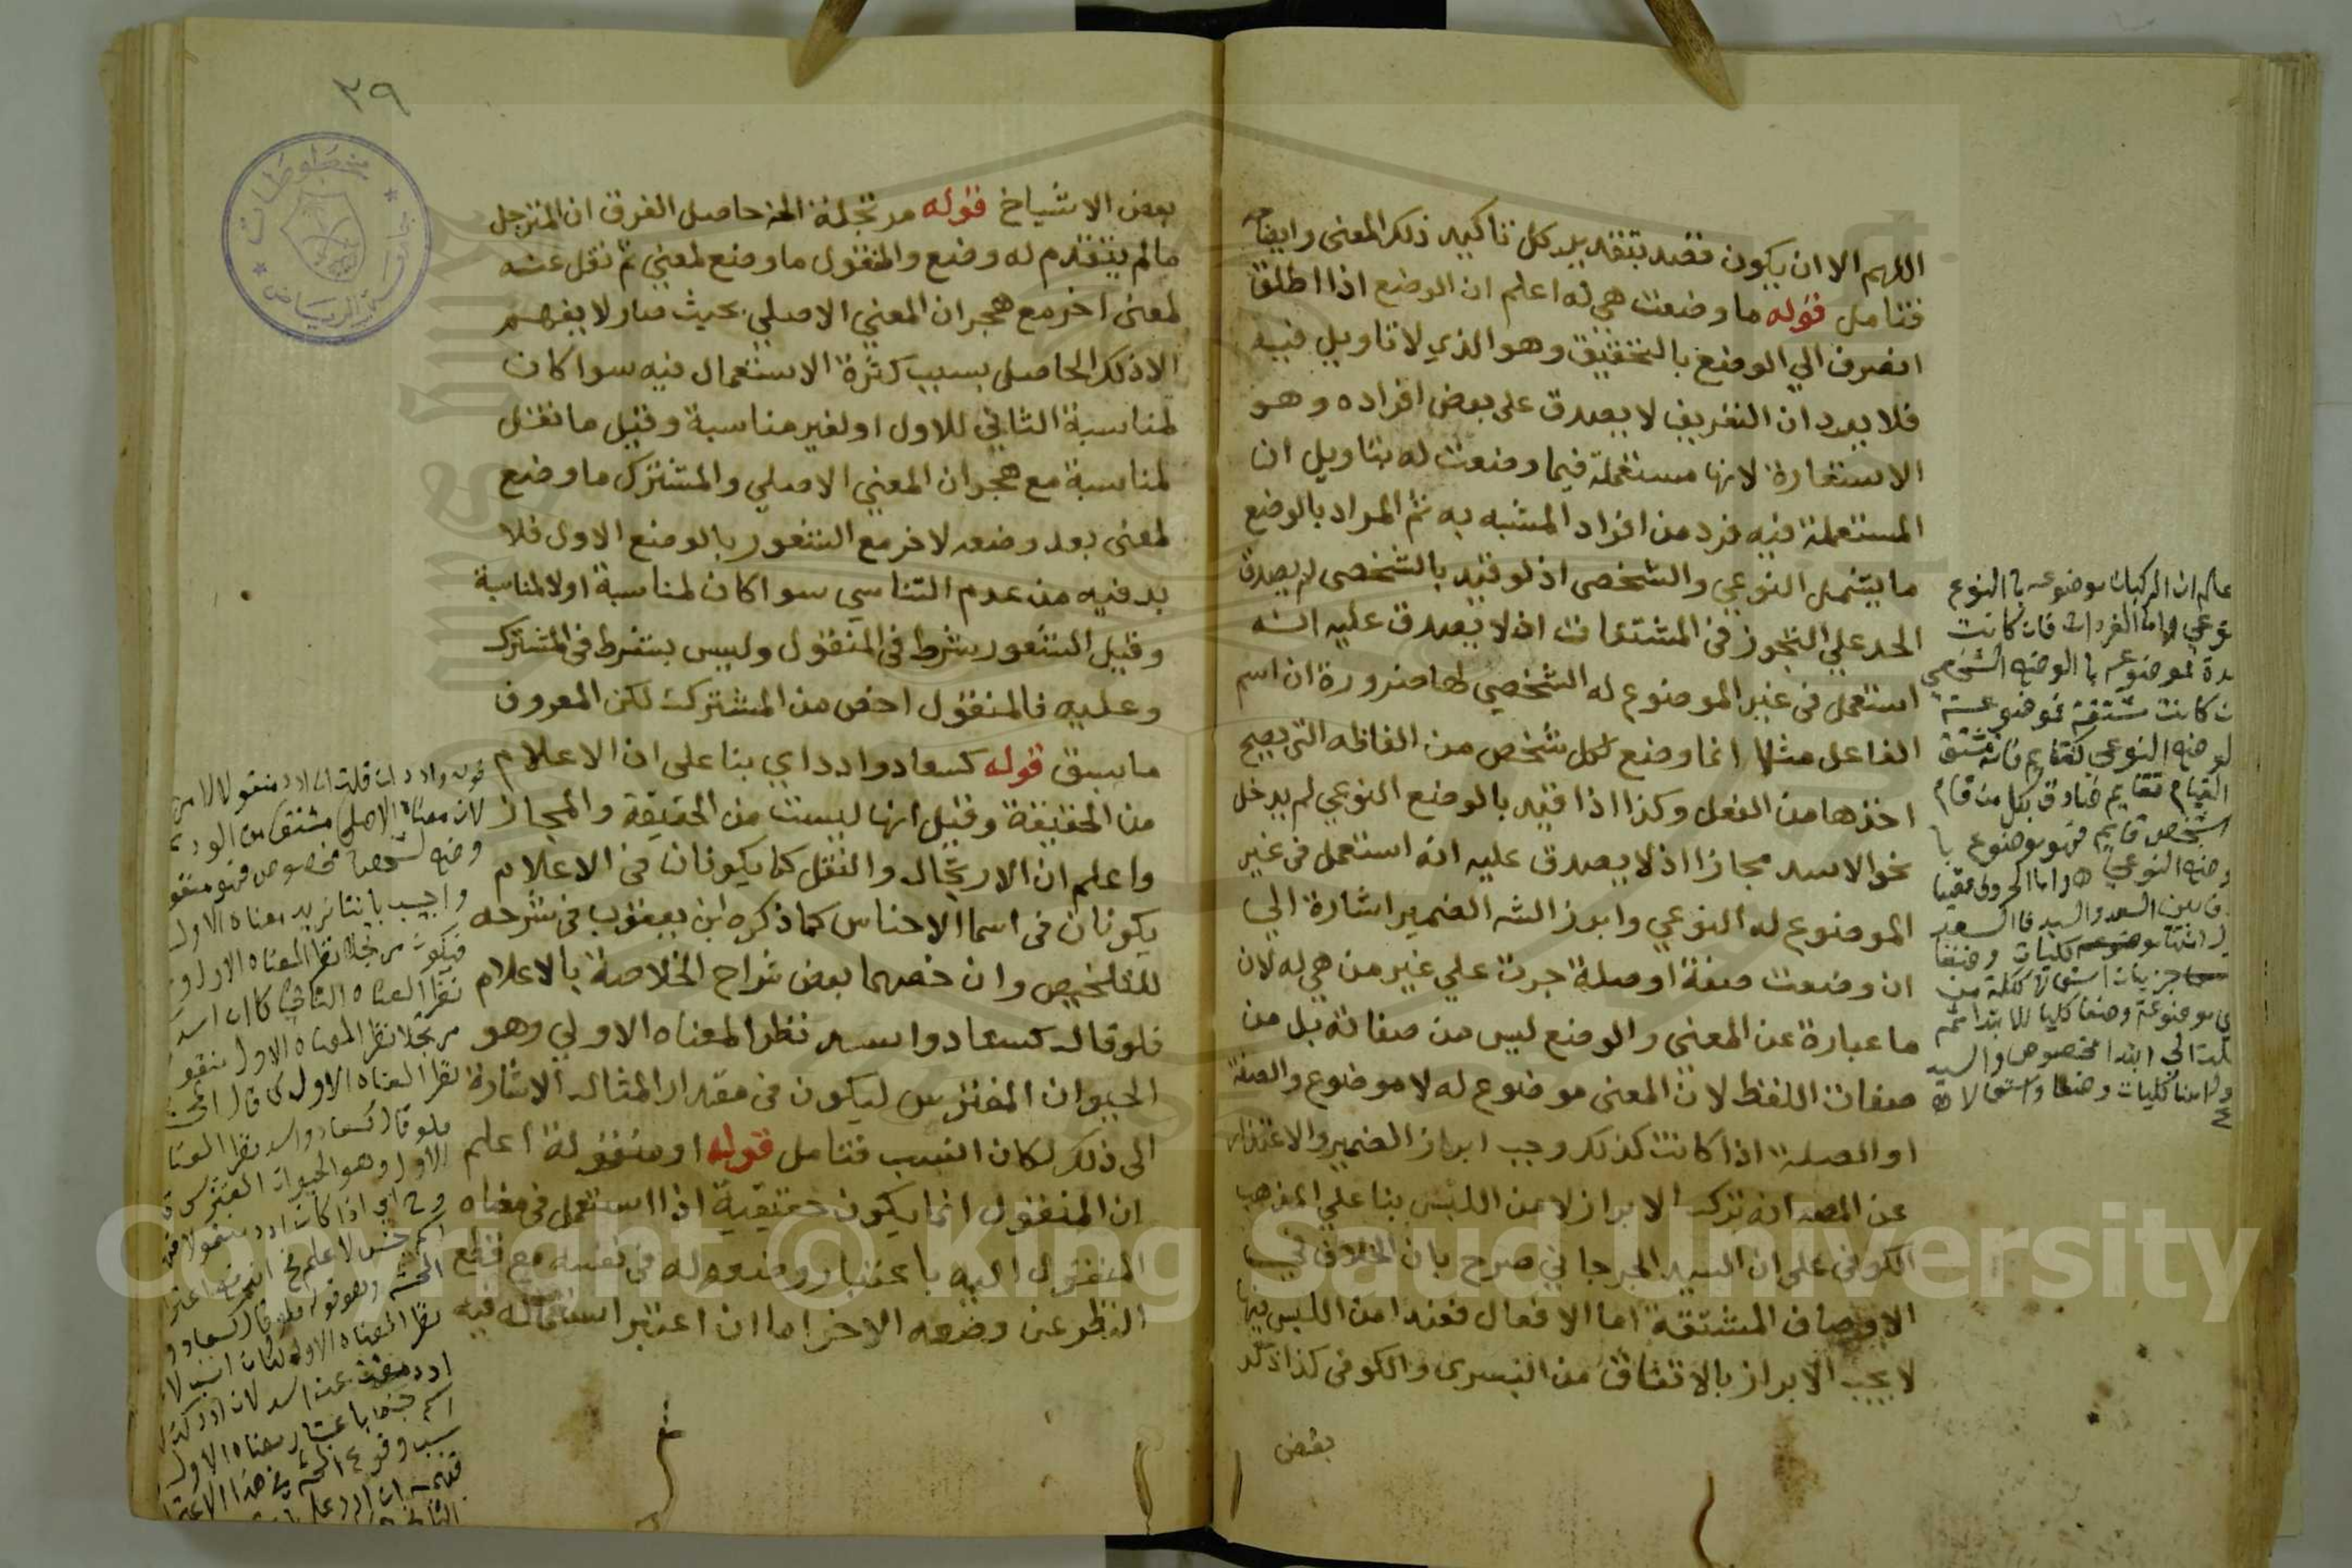 اللهم الا ان يكون قصد بتقديره كل تاكيد ذلك المعنى وايضاحه
فتامل قوله ما وضعت هي له اعلم ان الوضع اذا اطلق
انصرف الي الوضع بالتحقيق وهو الذي لا تاويل فيه
فلا يرد ان التعريف لا يصدق على بعض افراده وهو
الاستعارة لانها مستعملة فيما وضعت له بتاويل ان
المستعملة فيه فرد من افراد المشبه به ثم المراد بالوضع
ما يشمل النوعي والشخصى اذ لو قيد بالشخصى لم يصدق
الحد علي التجوز فى المشتقات اذ لا يصدق عليه انه
استعمل فى غير الموضوع له الشخصي لها ضرورة ان اسم
الفاعل مثلا انما وضع لكل شخص من الفاظه التى يصح
اخذها من الفعل وكذا اذا قيد بالوضع النوعي لم يدخل
نحو الاسد مجازا اذ لا يصدق عليه انه استعمل فى غير
الموضوع له النوعي وابرز الشه الضمير اشارة الي
ان وضعت صفة او صلة جرت علي غير من هي له لان
ما عبارة عن المعنى والوضع ليس من صفاته بل من
صفات اللفظ لان المعنى موضوع له لا موضوع والصفة
او الصلة اذا كانت كذلك وجب ابراز الضمير والاعتذار
عن المصه انه ترك الابراز لامن اللبس بنا علي المذهب
الكوفى على ان السيد الجرجاني صرح بان الخلاف في
الاوصاف المشتقة اما الافعال فعند امن اللبس فيها
لا يجب الابراز بالاتفاق من البصرى والكوفى كذا ذكر
بعض
عالم ان المركبات موضوعه بالنوع
نوعي واما المفردات فان كانت
مدة فموضوعه بالوضع الشخصي
ن كانت مشتقة فموضوعة
لوضع النوعي كقايم فانه مشتق
القيام فقايم صادق بكل من قام
اشخص قايم فهو موضوع با
وضع النوعي ه واما الحروف ففيها
ف بين السعد والسيد فالسعد
ل انها موضوعه كليات وضعا
جزييات استعمالا ككلمة من
ي موضوعة وضعا كليا للابتدا ثم
الي ابتدا مخصوص والسيد
ول انها كليات وضعا واستعمالا ه
٣٩
مخطوطات
جامعة الرياض
بعض الاشياخ قوله مرتجلة الخ حاصل الفرق ان المرتجل
مالم يتقدم له وضع والمنقول ما وضع لمعنى ثم نقل عنه
لمعنى اخر مع هجران المعني الاصلي بحيث صار لا يفهم
الا ذلك الحاصل بسبب كثرة الاستعمال فيه سوا كان
لمناسبة الثاني للاول او لغير مناسبة وقيل ما نقل
لمناسبة مع هجران المعني الاصلي والمشترك ما وضع
لمعنى بعد وضعه لاخر مع الشعور بالوضع الاول فلا
بد فيه من عدم التناسي سوا كان لمناسبة او لا لمناسبة
وقيل الشعور شرط فى المنقول وليس بشرط فى المشترك
وعليه فالمنقول اخص من المشترك لكن المعروف
ما سبق قوله كسعاد وادد اي بنا على ان الاعلام
من الحقيقة وقيل انها ليست من الحقيقة والمجاز
واعلم ان الارتجال والنقل كما يكونان فى الاعلام
يكونان فى اسما الاجناس كما ذكره ابن يعقوب فى شرحه
للتلخيص وان خصهما بعض شراح الخلاصة بالاعلام
فلو قال كسعاد واسد نظرا لمعناه الاولي وهو
الحيوان المفترس ليكون فى مقدار المثال الاشارة
الى ذلك لكان انسب فتامل قوله او منقولة اعلم
ان المنقول انما يكون حقيقية اذا استعمل فى معناه
المنقول اليه باعتبار وضعه له فى نفسه مع قطع
النظر عن وضعه الاخر اما ان اعتبر استعماله فيه
قوله وادد ان قلت ان ادد منقول لا من
لان معناه الاصلي مشتق من الود ثم
وضع لشخص مخصوص فهو منقو
واجيب باننا نريد معناه الاول
فيكون مرتجلا نظرا لمعناه الاول و
نظرا لمعناه الثاني كما ان اسد
مرتجلا نظرا لمعناه الاول منقو
نظرا لمعناه الاول كما قال
فلو قال كسعاد واسد نظرا لمعنا
الاول وهو الحيوان المفترس
وح اي اذا كان ادد منقولا
اسم جنس لا علم
المحشى وهو قوله فلو قال كسعاد و
نظرا لمعناه الاول لكان انسب لا
ادد عن اسد لان ادد
اسم جنس باعتبار معناه الاول